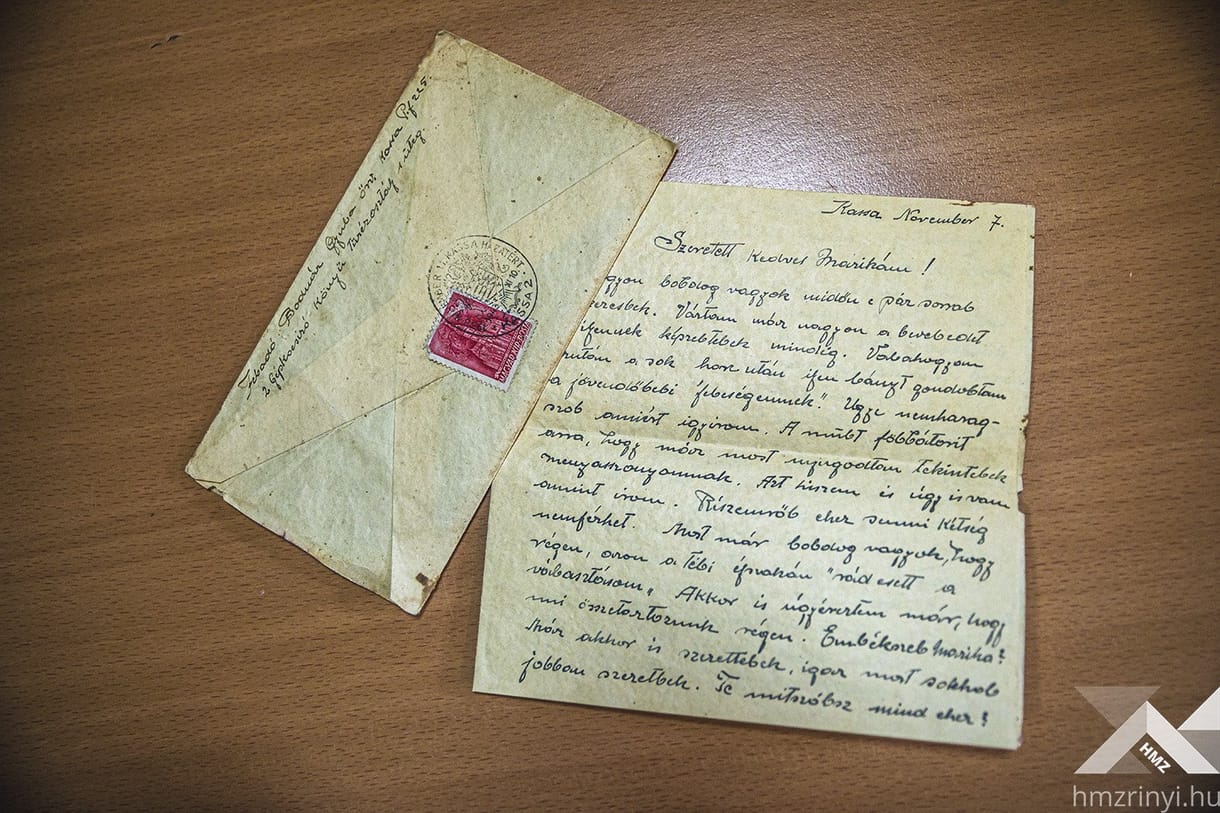 Feladó Bodnár Gyula őrv. Kassa P.f 225.
2 Gépkocsizó Könnyű 1 üteg.
KASSA HAZATÉRT
KASSA 2
Kassa November 7.
Szeretett Kedves Marikám!
boldog vagyok midőn e pár sorod
Vártam már nagyon a leveledet
ilyennek képzeltelek mindég. Valahogyan
a sok harc után ilyen lányt gondoltam
a jövendőbeli feleségemnek". Ugye nemharag-
szol amiért igyirom. A múlt följjátosit
arra, hogy már most nyugodtan tekintelek
menyasszonyomnak. Azt hiszem és úgy is van
amint irom. Részemről eher semmi kétség
nemférhet. Most már boldog vagyok, hogy
régen, azon a téli éjszakán "rád esett a
választásom„ Akkor is úgyéreztem már, hogy
mi összetartozunk régen. Emlékszel Marika?
Már akkor is szerettelek, igaz most sokkal
jobban szeretlek. Te mitszólsz mind eher?
HMZ
hmzrinyi.hu